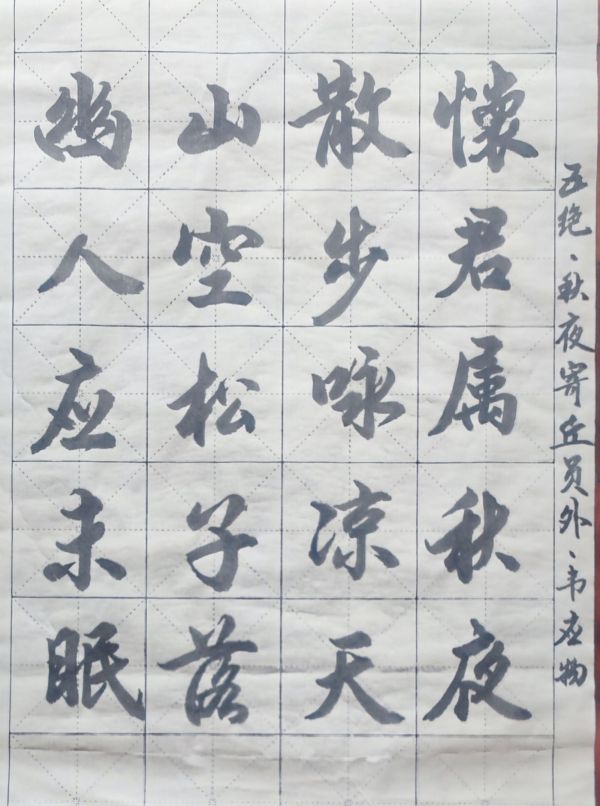 五绝、秋夜寄丘员外、韦应物
懷君属秋夜
散步咏凉天
山空松子落
幽人应未眠